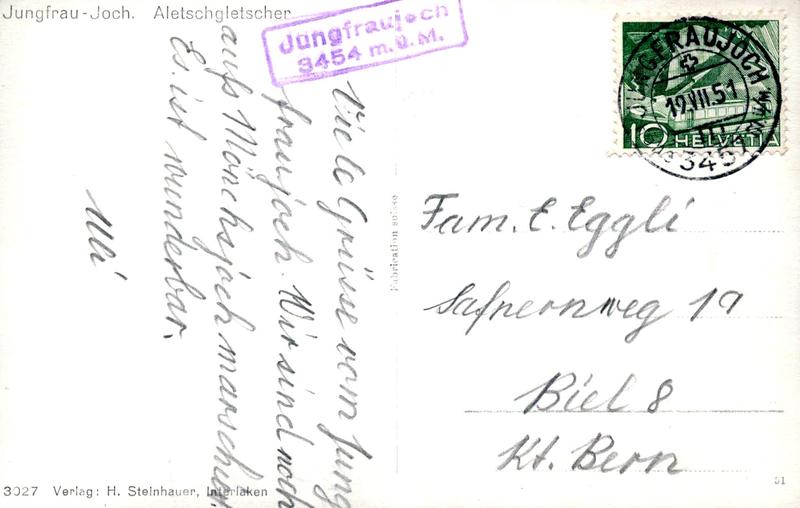 Jungfrau-Joch. Aletschgletscher
Jungfraujoch
3454 m.ü.M.
JUNGFRAUJOCH
12.VII.51
10 HELVETIA
Viele Grüsse vom Jung
fraujoch. Wir sind noch
aufs Mönchsjoch marschiert.
Es ist wunderbar.
Ueli
Fabrication suisse
Fam. E. Eggli
Safnernweg 19
Biel 8
Kt. Bern
3027 Verlag: H. Steinhauer, Interlaken